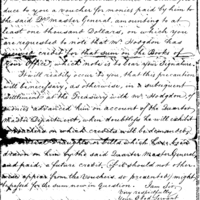 due to you a voucher for monies paid by him to
the said Qr. master general, amounting to at
least one thousand Dollars, in which you
are requested to note that Mr. Hodgdon has
direct credit for that sum on the Books of
your Office, which note is to bear your Signature.
It will readily occur to you, that this precaution
will be necessary, as otherwise, in a subsequent
settlement at the Treasury with Mr. Hodgdon of
monies advanced him on account of the Quarter
Master Department, when doubtless he will exhibit
on which credits will be demanded
bills which were
drawn on him by the said Quarter Master General
and paid, a future credit, if it should not other-
wise appear from the vouchers so presented, might
be passed for the sum now in Question.
I am Sir,
very respectfully
Your Obed. Servant